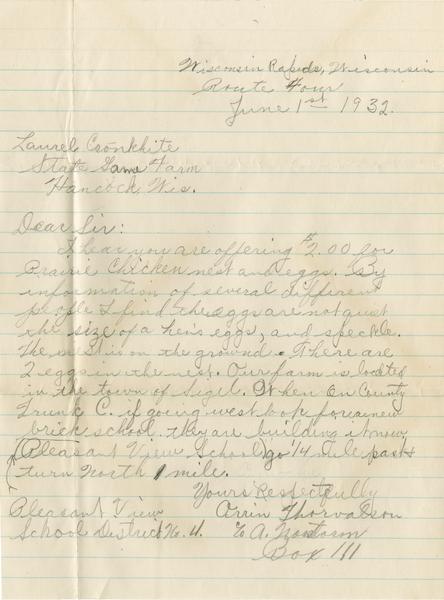 Wisconsin Rapids, Wisconsin
Route Four
June 1st 1932.
Laurel Cronkhite
State Game Farm
Hancock, Wis.
Dear Sir:
I hear you are offering $2.00 for
Prairie Chicken nest and eggs. By
information of several different
people I find the eggs are not quit
the size of a hen's eggs, and speckle.
The nest is on the ground. There are
2 eggs in the nest. Our farm is located
in the town of Sigel. When on County
Trunk C. if going west look for a new
brick school. they are building it now,
(Pleasant View School) go 1/4 mile past &
turn North 1 mile.
Yours Respectfully
Pleasant View Orrin Thorvalson
School District No. 4. % A.
Box 111